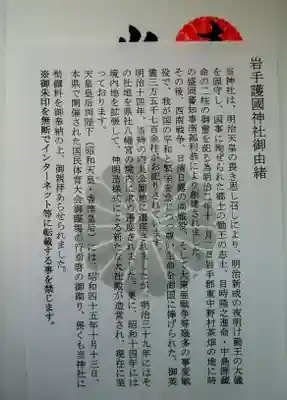 岩手護國神社御由緒
当神社は、明治天皇の畏き思し召しにより、明治新戒の夜明け勤王の大義
を固守し、国事に殉ぜられた郷土の勤王の志士、目時隆之進命・中島源蔵
命の二柱の御霊を祀る為明治二年十一月二日岩手郡東中野村茶畑の地に時
の盛岡藩知事南部利恭により創建されました。
その後、西南戦争、日清日露の両戦役、そして大東亜戦争等幾多の事変戦
役で、我が国の平和と繁栄を念じつつ尊い生命を御国に捧げられた、御英
霊三万五千七百余柱がおまつりされております。
明治十四年、当時の内丸公園地に遷座されましたが、明治三十九年にはそ
の社地を県社八幡宮の境内に求め遷座されました。更に、昭和十四年には
境内地を拡張して、神明造様式による新たな大社殿が造営され、現在に至
っております。
天皇皇后両陛下(昭和天皇・香淳皇后)には、昭和四十五年十月十三日、
本県で開催された国民体育大会御臨場の行幸啓の御砌り、畏くも当神社に
幣饌料を御奉納の上、御親拝あらせられました。
※御朱印を無断でインターネット等に転載する事を禁じます。